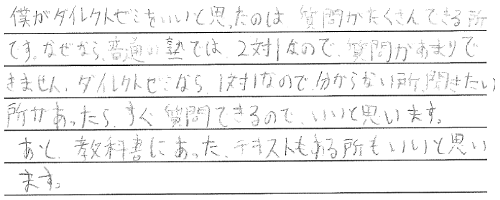 僕がダイレクトゼミをいいと思ったのは 質問がたくさんできる所
です。なぜなら、普通の塾では 2対1なので、質問があまりで
きません。ダイレクトゼミなら、1対1なので分からない所、聞きたい
所があったら、すぐ質問できるので、いいと思います。
あと、教科書にあった、テキストもある所もいいと思い
ます。